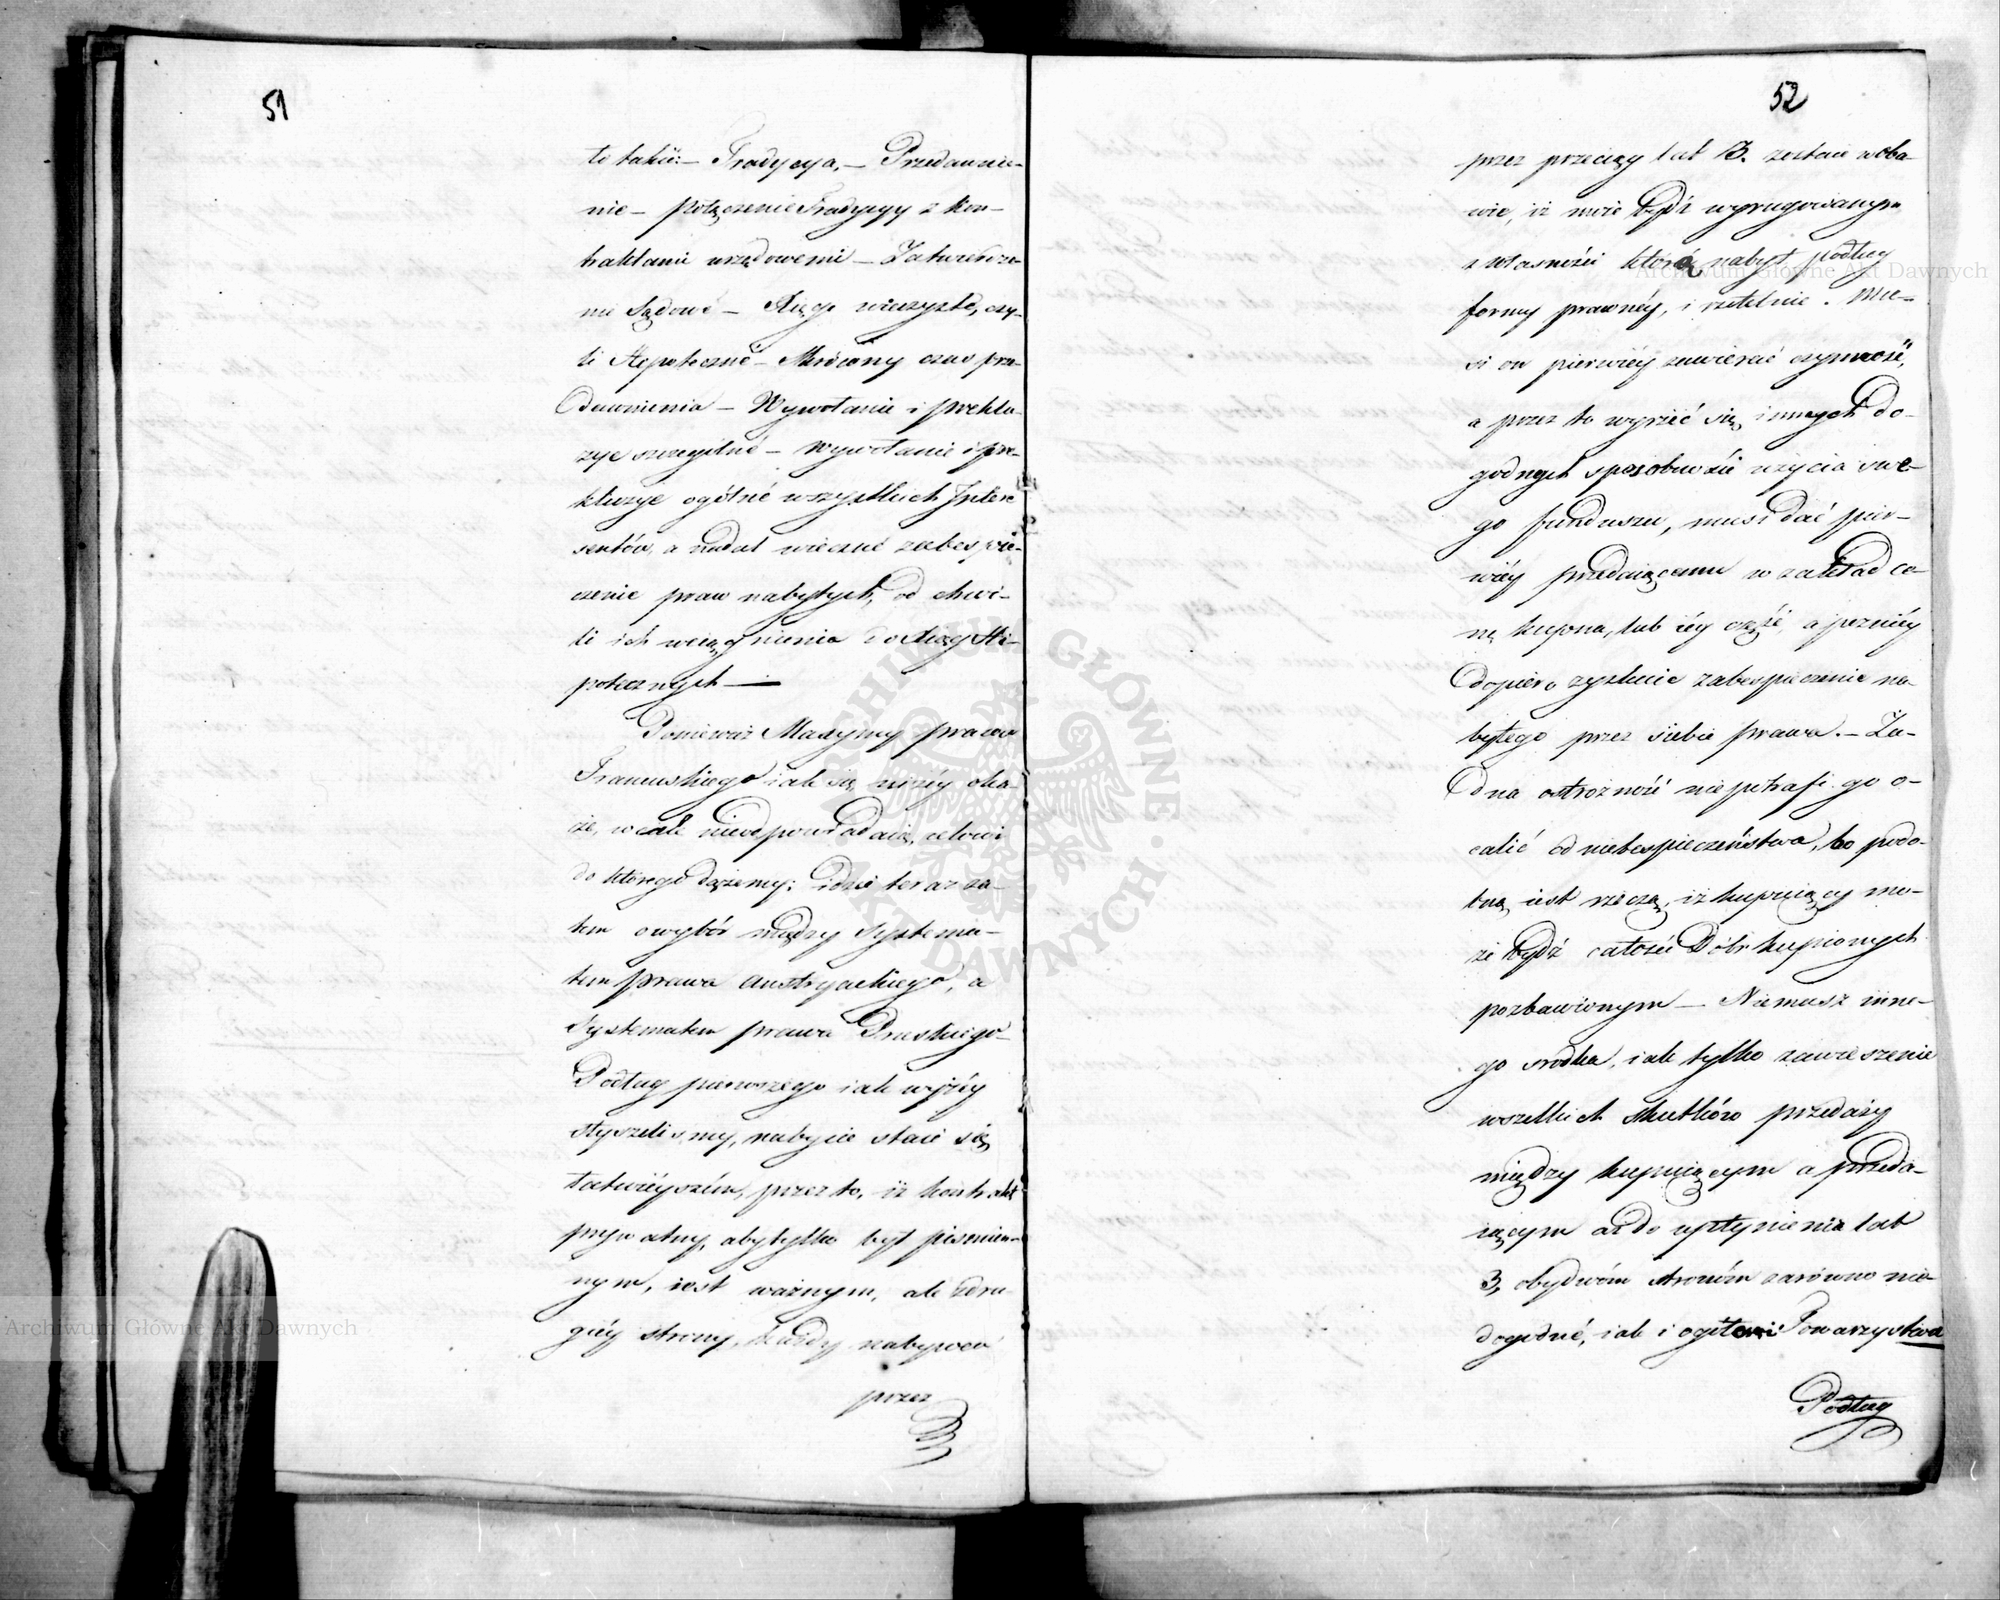 51
to takié: — Tradycya, — Przedawnie-
nie — połączenie Tradycyy z kon-
traktami urzędowemi — Zatwierdze-
nie Sądowé — Xięgi wieczysté, czy-
li Hypoteczné — Skrócony czas prze-
dawnienia — Wywołanie i preklu-
zye szczególné — Wywołanie i pre-
kluzye ogólné wszystkich Intere
sentów, a nadal wieczné zabespie-
czenie praw nabytych, od chwi-
li ich wciągnienia do Xiąg Hi-
potecznych —
Ponieważ Maxymy prawa
Francuskiego iak się niżéy oka-
że, wcale nieodpowiadaią celowi
do którego dążemy; idzie teraz za-
tem o wybór między Systema-
tem prawa Austryackiego, a
Systematem prawa Pruskiego
Podług pierwszego iak wyżéy
słyszeliśmy, nabycie staie się
łatwiéyszém, przez to, iż kontrakt
prywatny, aby tylko był piśmien-
nym, iest ważnym, ale z dru-
giéy strony, każdy nabywca
przez
52
przez przeciąg lat 3. zostaie w oba-
wie, iż może bydź wyrugowanym
z własności którą nabył podług
formy prawnéy, i rzetelnie. Mu-
si on pierwiéy zawierać czynność,
a przez to wyrzec się innych do-
godnych sposobności użycia swe-
go funduszu, musi dać pier-
wiéy przedaiącemu w zakład ce-
nę kupna, lub iéy część, a pozniéy
dopiero zyskuie zabespieczenie na-
bytego przez siebie prawa. — Ża-
dna ostrożność niepotrafi go o-
calić od niebespieczeństwa, bo podo-
bną iest rzeczą, iż kupuiący mo-
że bydź całości Dóbr kupionych
pozbawionym — Niemasz inne-
go srodka, iak tylko zawieszenie
wszelkich skutków przedaży
między kupuiącym a przeda-
iącym aż do upłynienia lat
3, obydwóm stronóm zarówno nie-
dogodné, iak i ogółowi Towarzystwa
Podług
Archiwum Główne Akt Dawnych
Archiwum Główne Akt Dawnych
ARCHIWUM GŁÓWNE AKT DAWNYCH